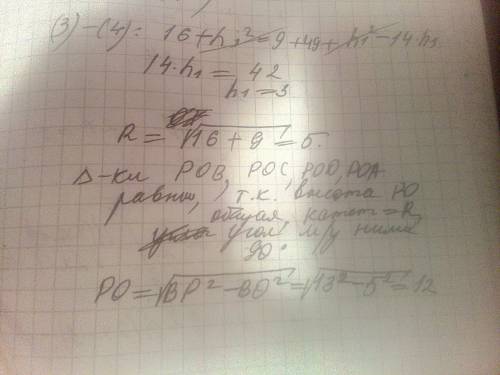 (3)-(4): 16 + h₁² = 9 + 49 + h₁² - 14·h₁.
14·h₁ = 42
h₁ = 3
R = √16 + 9 = 5.
Δ-ки POB, POC, POD, POA
равны, т.к. высота PO
общая, катет = R,
угол м/у ними
90°
PO = √BP² - BO² = √13² - 5² = 12